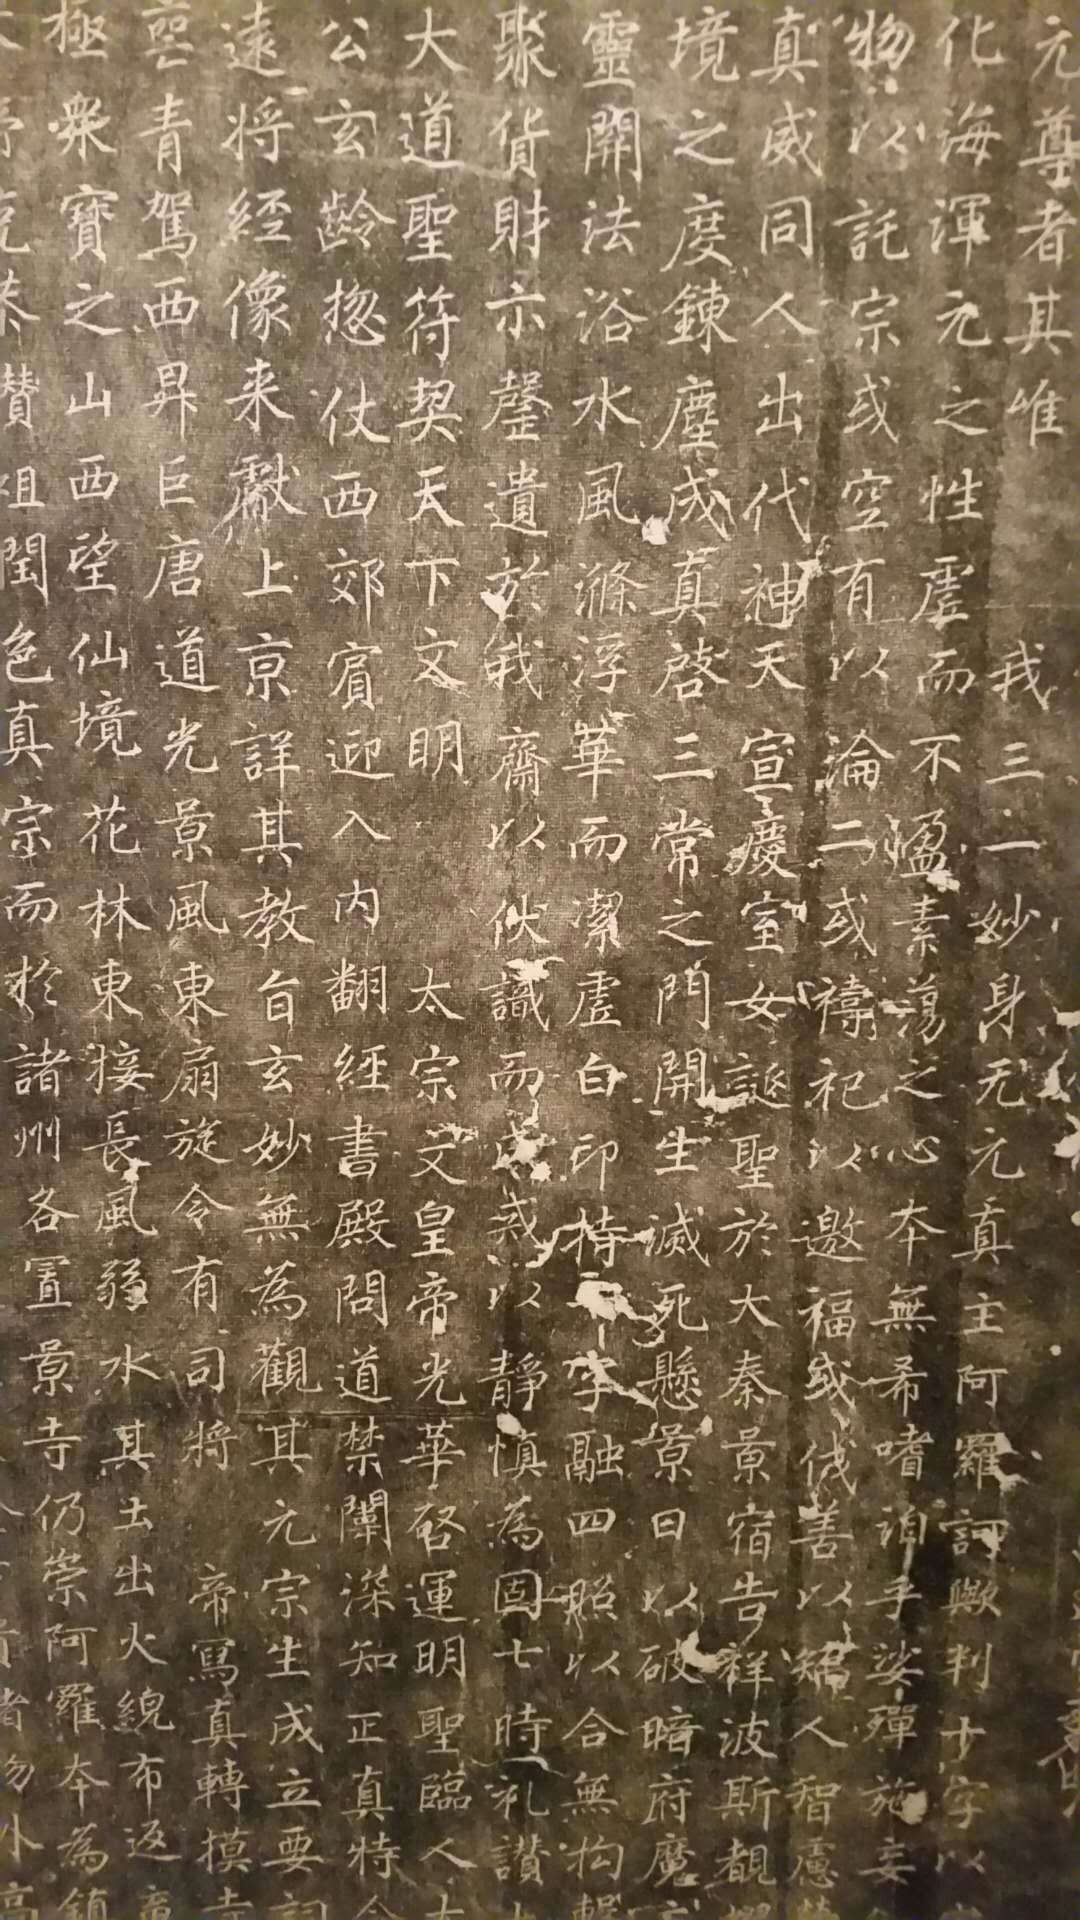 元尊者其唯 我三一妙身无元真主阿羅訶歟判十字以
化海渾元之性虛而不盈素蕩之心本無希嗜洎乎娑殫施妄
物以託宗或空有以淪二或禱祀以邀福或伐善以矯人智慮
真威同人出代神天宣慶室女誕聖於大秦景宿告祥波斯覩
境之度鍊塵成真啓三常之門開生滅死懸景日以破暗府魔
靈關法浴水風滌浮華而潔虛白印持十字融四照以合無拘
聚貨財示罄遺於我齋以伏識而成戒以靜慎為固七時礼讚
大道聖符契天下文明 太宗文皇帝光華啓運明聖臨人
公玄齡揔仗西郊賓迎入內翻經書殿問道禁闈深知正真特令
遠將經像来獻上京詳其教旨玄妙無為觀其元宗生成立要詞
喪青駕西昇巨唐道光景風東扇旋令有司將 帝寫真轉摸寺
極衆寶之山西望仙境花林東接長風弱水其土出火綄布返
克恭纘祖閏色真宗而於諸州各置景寺仍崇阿羅本為鎮
者勿外高